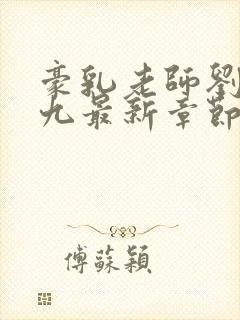 豪乳老師劉
九最新章節
傅蘇穎